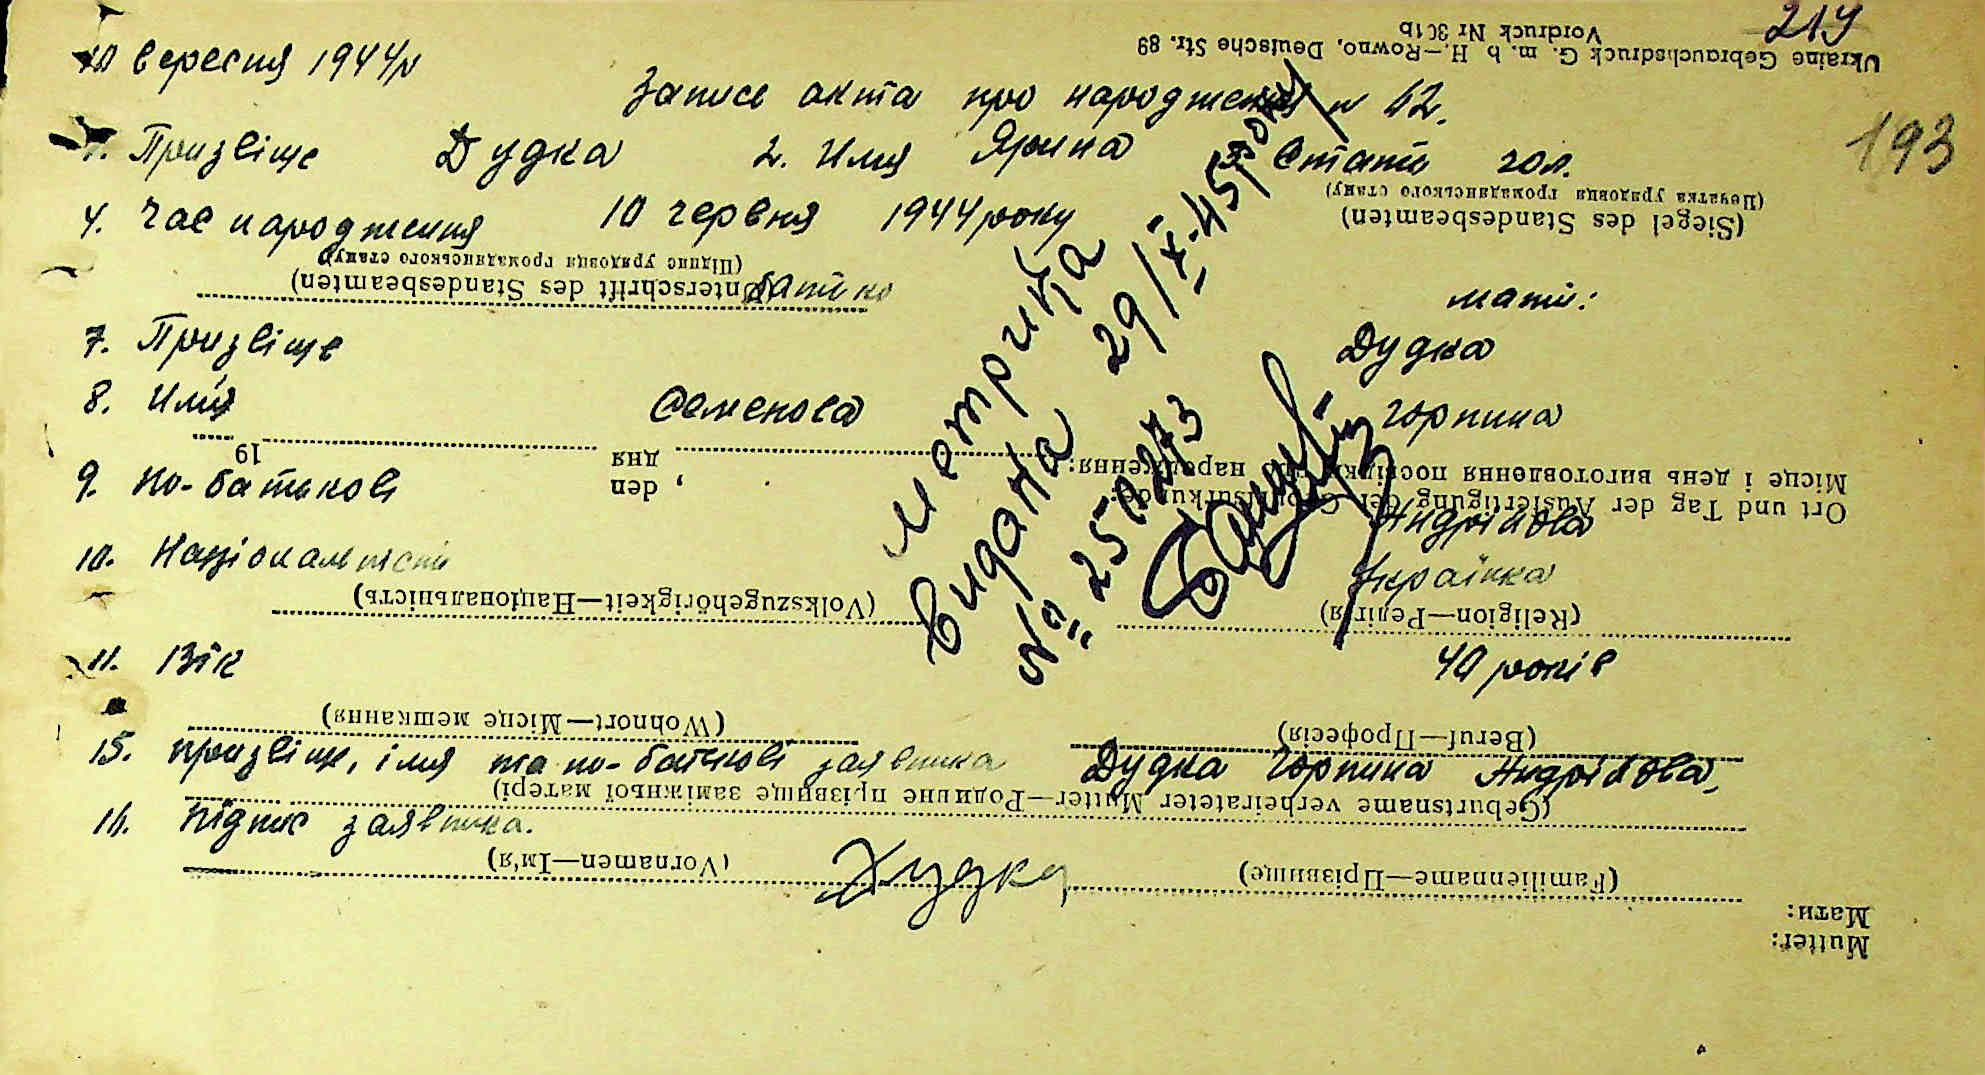 219
10 вересня 1944 р
Запись акта про народження N 42.
193
1. Призвіще Дудка 2. Имя Ярина 3. Стать жол.
4. Час народження 10 червня 1944 року
батько мати:
7. Призвіще Дудка
8. Имя Семенова Горпина
9. По-батькові Андріївова
10. Національность Українка
11. Вік 40 років
15. призвіще, імя та по-батькові заявника Дудка Горпина Андріївова,
16. підпис заявника. Дудка
метрика
видана 29/X-45 року
№ 250273
Mutter:
Мати:
(Familienname—Прізвище) (Vornamen—Ім'я)
(Geburtsname verheirateter Mutter—Родинне прізвище заміжньої матері)
(Beruf—Професія) (Wohnort—Місце мешкання)
(Religion—Релігія) (Volkszugehörigkeit—Національність)
Ort und Tag der Ausfertigung der
Місце і день виготовлення посвідки про народження:
, den 19
дня
(Unterschrift des Standesbeamten)
(Підпис урядовця громадянського стану)
(Siegel des Standesbeamten)
(Печатка урядовця громадянського стану)
Vordruck Nr 301b
Ukraine Gebrauchsdruck G. m. b. H.—Rowno, Deutsche Str. 89